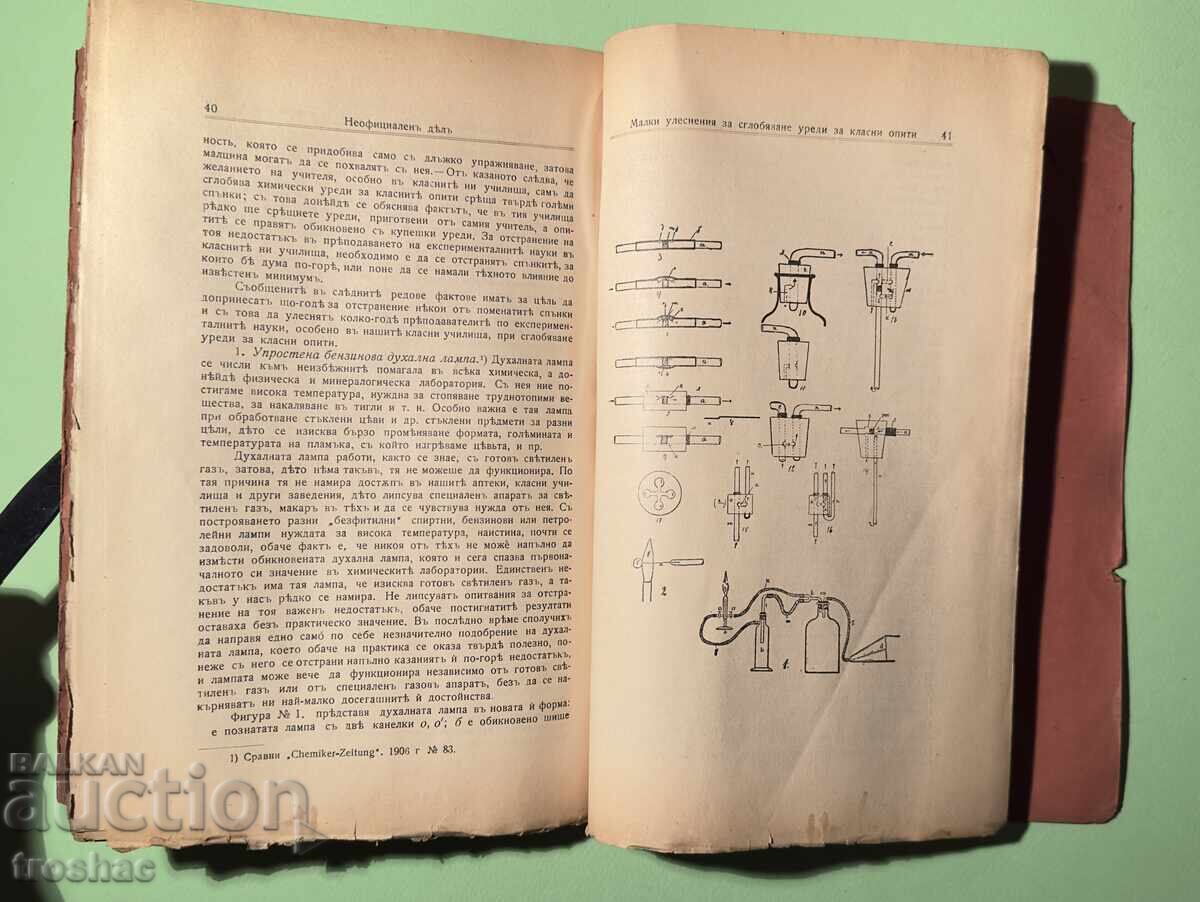 40
Неофициаленъ дѣлъ
ность, която се придобива само съ длъжко упражняване, затова
малцина могатъ да се похвалятъ съ нея.—Отъ казаното слѣдва, че
желанието на учителя, особно въ класнитѣ ни училища, самъ да
сглобява химически уреди за класнитѣ опити срѣща твърдѣ голѣми
спънки; съ това донѣйдѣ се обяснява фактътъ, че въ тия училища
рѣдко ще срѣщнете уреди, приготвени отъ самия учитель, а опи-
титѣ се правятъ обикновено съ купешки уреди. За отстранение на
тоя недостатъкъ въ прѣподаването на експерименталнитѣ науки въ
класнитѣ ни училища, необходимо е да се отстранятъ спънкитѣ, за
които бѣ дума по-горѣ, или поне да се намали тѣхното влияние до
известенъ минимумъ.
Съобщенитѣ въ слѣднитѣ редове факти иматъ за цѣль да
допринесатъ що-годѣ за отстранение нѣкои отъ поменатитѣ спънки
и съ това да улеснятъ колко-годѣ прѣподавателитѣ по експеримен-
талнитѣ науки, особено въ нашитѣ класни училища, при сглобяване
уреди за класни опити.
1. Упростена бензинова духална лампа.¹) Духалната лампа
се числи къмъ неизбѣжнитѣ помагала въ всѣка химическа, а до-
нѣйдѣ физическа и минералогическа лаборатория. Съ нея ние по-
стигаме висока температура, нуждна за стопяване труднотопими ве-
щества, за накаляване въ тигли и т. н. Особно важна е тая лампа
при обработване стъклени цѣви и др. стъклени прѣдмети за разни
цѣли, дѣто се изисква бързо промѣняване формата, голѣмината и
температурата на пламъка, съ който изгрѣваме цѣвьта, и пр.
Духалната лампа работи, както се знае, съ готовъ свѣтиленъ
газъ, затова, дѣто нѣма такъвъ, тя не можеше да функционира. По
тая причина тя не намира достѫпъ въ нашитѣ аптеки, класни учи-
лища и други заведения, дѣто липсува специаленъ апаратъ за свѣ-
тиленъ газъ, макаръ въ тѣхъ и да се чувствува нужда отъ нея. Съ
построяването разни „безфитилни“ спиртни, бензинови или петро-
лейни лампи нуждата за висока температура, наистина, почти се
задоволи, обаче фактъ е, че никоя отъ тѣхъ не може напълно да
измѣсти обикновената духална лампа, която и сега спазва първона-
чалното си значение въ химическитѣ лаборатории. Единственъ не-
достатъкъ има тая лампа, че изисква готовъ свѣтиленъ газъ, а та-
къвъ у насъ рѣдко се намира. Не липсуватъ опитвания за отстра-
нение на тоя важенъ недостатъкъ, обаче постигнатитѣ резултати
оставаха безъ практическо значение. Въ послѣдно врѣме сполучихъ
да направя едно само по себе незначително подобрение на духал-
ната лампа, което обаче на практика се оказа твърдѣ полезно, по-
неже съ него се отстрани напълно казаниятъ ѝ по-горѣ недостатъкъ,
и лампата може вече да функционира независимо отъ готовъ свѣ-
тиленъ газъ или отъ специаленъ газовъ апаратъ, безъ да се на-
кърняватъ ни най-малко досегашнитѣ ѝ достойнства.
Фигура № 1. прѣдставя духалната лампа въ новата ѝ форма:
е познатата лампа съ двѣ канелки о, о'; б е обикновено шише
1) Сравни „Chemiker-Zeitung“. 1906 г № 83.
Малки улеснения за сглобяване уреди за класни опити 41
10
11
12
15
16
17
2
1
BALKAN
auction
troshac